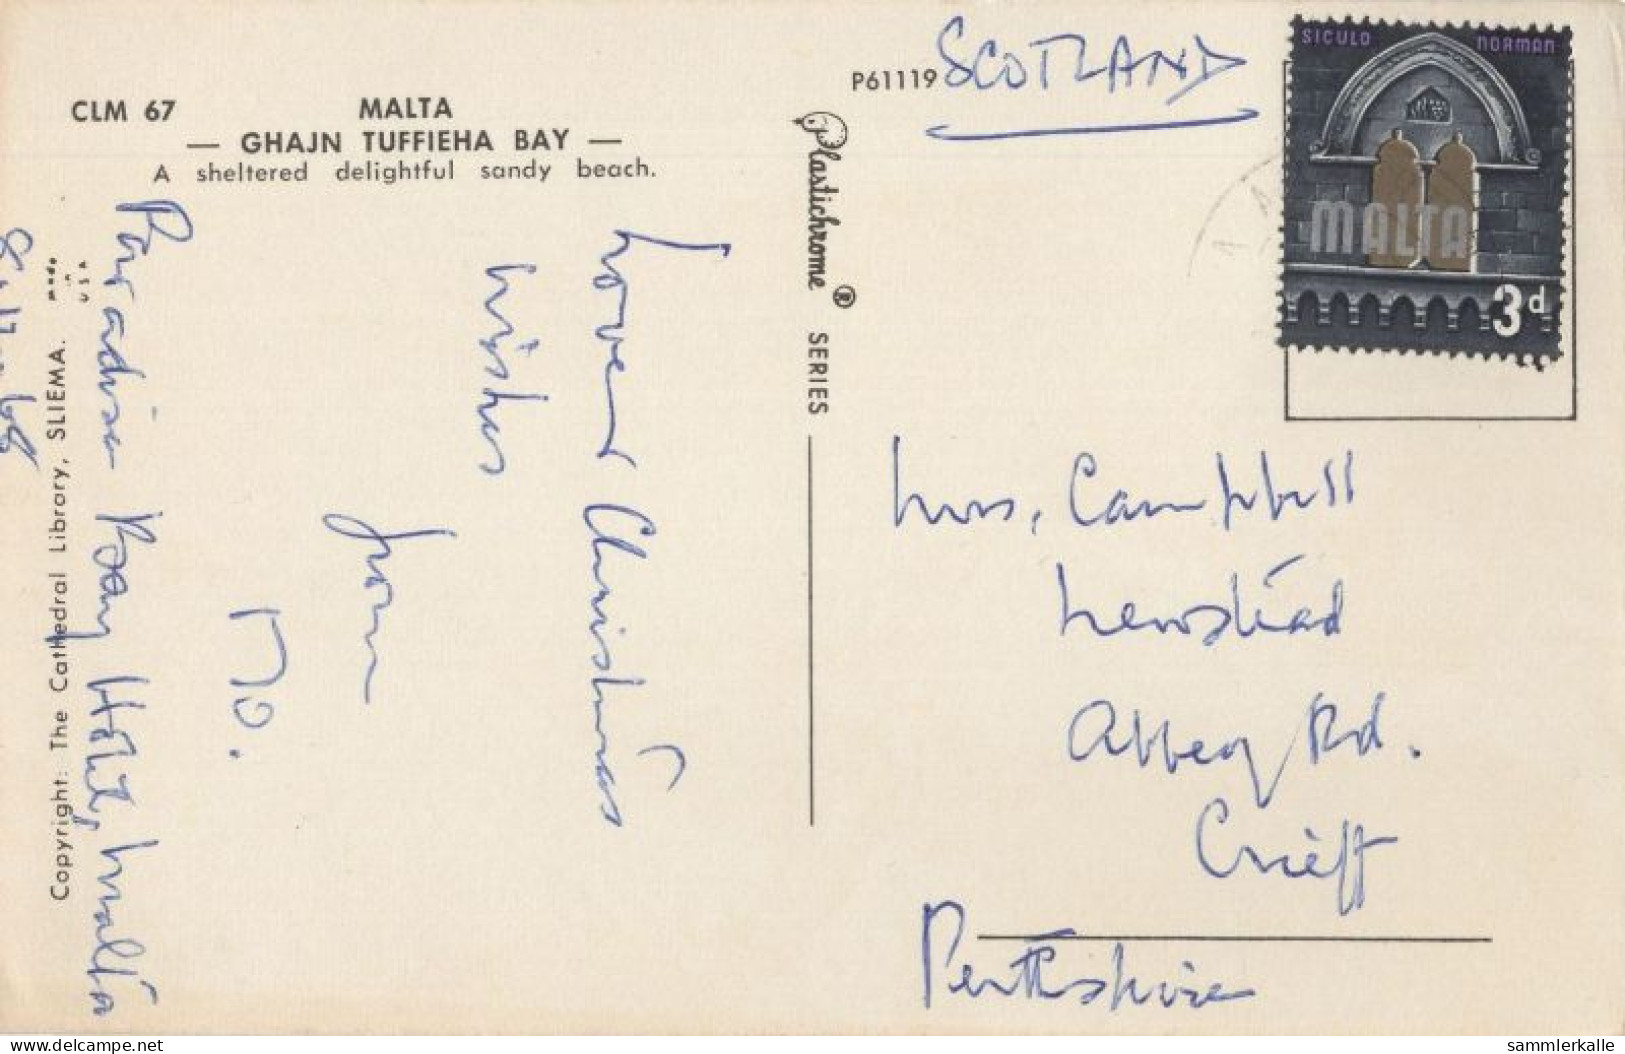 CLM 67
MALTA
— GHAJN TUFFIEHA BAY —
A sheltered delightful sandy beach.
Love and Christmas
wishes
from
Paradise Bay Hotel, Malta
Copyright: The Cathedral Library, SLIEMA.
Made
in
USA
Plastichrome ® SERIES
P61119
SCOTLAND
SICULO NORMAN
MALTA
3d
Mrs. Campbell
Newstead
Abbey Rd.
Crieff
Perthshire
delcampe.net
sammlerkalle